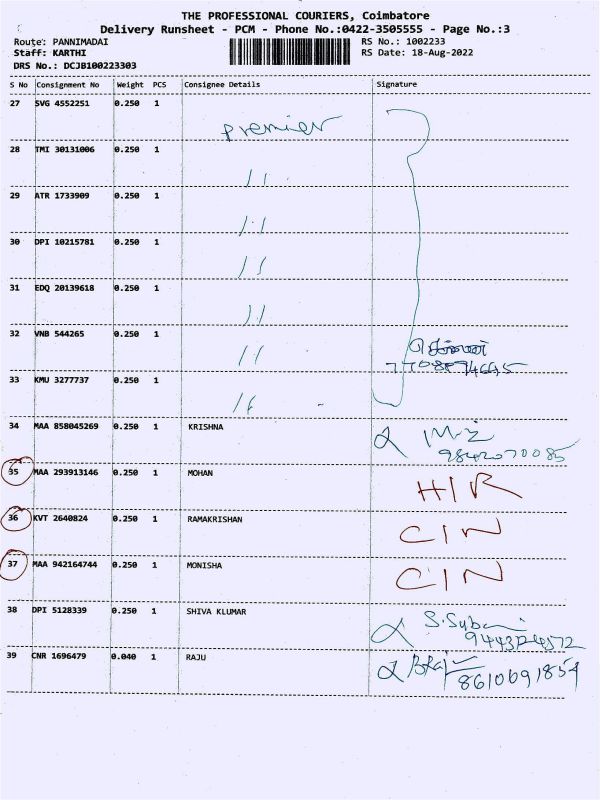 THE PROFESSIONAL COURIERS, Coimbatore
Delivery Runsheet - PCM - Phone No.:0422-3505555 - Page No.:3
Route: PANNIMADAI RS No.: 1002233
Staff: KARTHI RS Date: 18-Aug-2022
DRS No.: DCJB100223303
S No Consignment No Weight PCS Consignee Details Signature
27 SVG 4552251 0.250 1
Premier
28 TMI 30131006 0.250 1
11
29 ATR 1733909 0.250 1
11
30 DPI 10215781 0.250 1
11
31 EDQ 20139618 0.250 1
11
32 VNB 544265 0.250 1
11
33 KMU 3277737 0.250 1
11
34 MAA 858045269 0.250 1 KRISHNA
9842070085
35 MAA 293913146 0.250 1 MOHAN H/R
36 KVT 2640824 0.250 1 RAMAKRISHAN CIN
37 MAA 942164744 0.250 1 MONISHA CIN
38 DPI 5128339 0.250 1 SHIVA KLUMAR
39 CNR 1696479 0.040 1 RAJU
8610691854